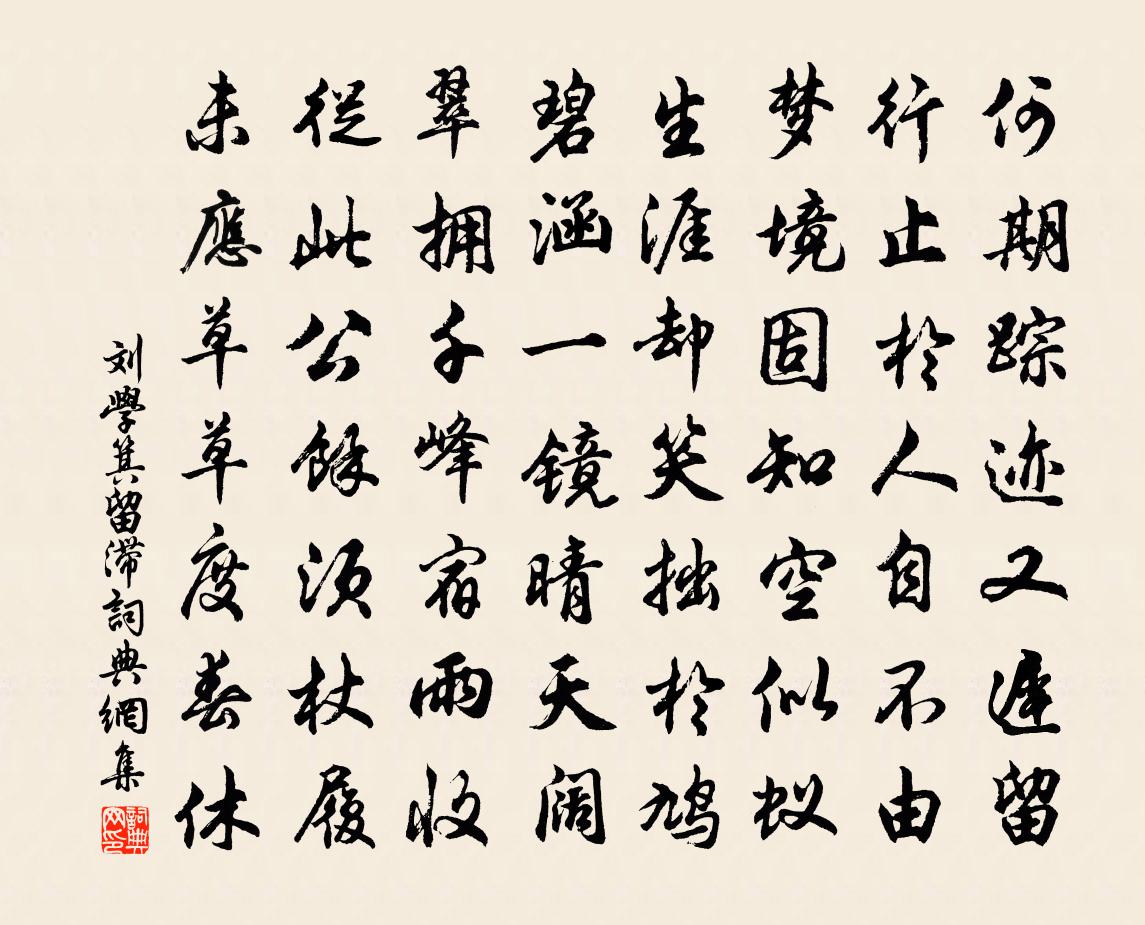 何期踪迹又遲留
行止於人自不由
梦境固知空似蚁
生涯却笑拙於鸠
碧涵一镜晴天阔
翠拥千峰宿雨收
從此公餘须杖履
未應草草度春休
刘學箕留滞詞典網集
詞典網印